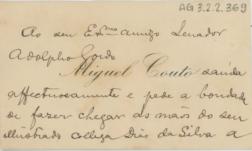 AG 3.2.2.369
Ao seu Ex.mo amigo Senador
Adolpho Gordo
Miguel Couto saúda
affectuosamente e pede a bondade
de fazer chegar ás mãos do seu
illustrado collega Dias da Silva a